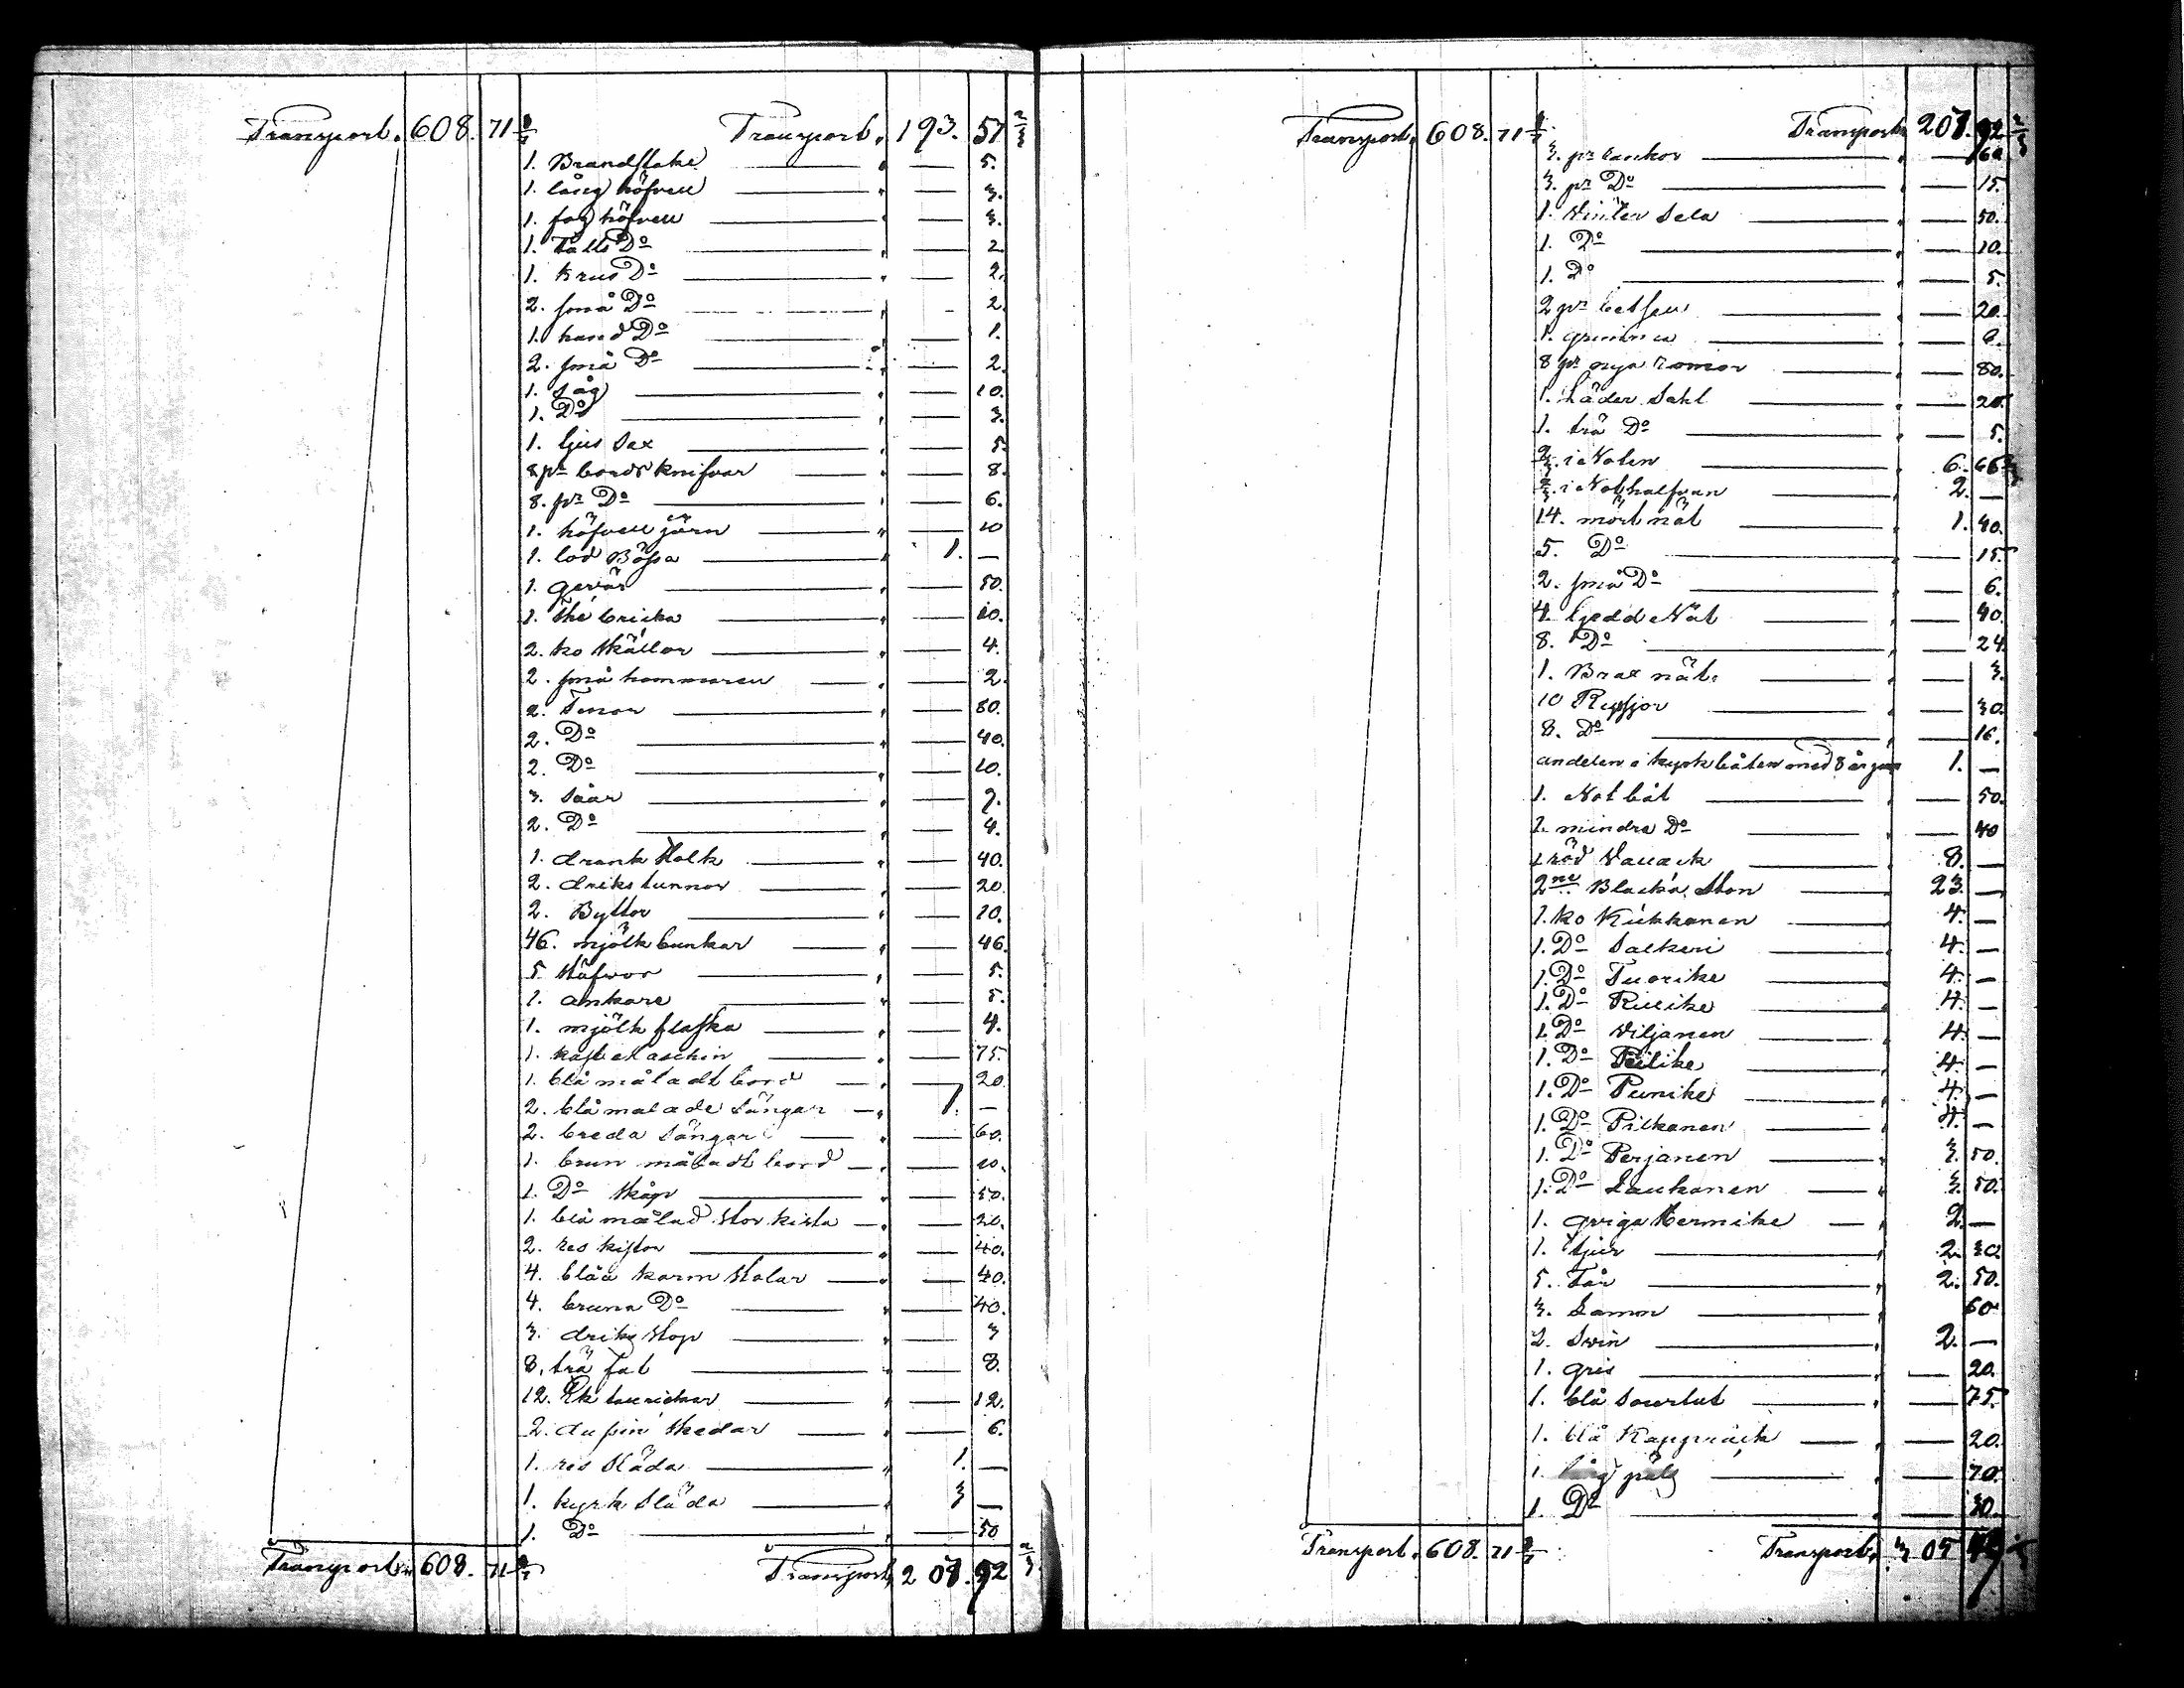 Transport. 608. 71 2/7 Transport. 193. 57 2/3
1. Brandstake — 5.
1. lång höfvell — 3.
1. fog höfvell — 3.
1. Do — 2
1. Krus Do — 2.
2. små Do — 2
1. hand Do — 1.
2. små Do — 2.
1. såg — 10.
1. Do — 3.
1. ljus Sax — 5
8 pr bords knifvar — 8.
8. pr Do — 6.
1. höfvell järn — 10
1. lod Bössa — 1. —
1. gevär — 50.
1. thé bricka — 10.
2. ko skällor — 4.
2. små hammaren — 2.
2. Tinor — 80.
2. Do — 40.
2. Do — 10.
3. Såar — 9.
2. Do — 4.
1. drank stolk — 40.
2. driks tunnor — 20.
2. Byttor — 10.
46. mjölk bunkar — 46.
5. stäfvor — 5.
1. ankare — 5.
1. mjölk flaska — 4.
1. Maschin — 75.
1. blå måladt bord — 20
2. blå malade sängar — 1. —
2. breda sängar — 60.
1. brun måladt bord — 10.
1. Do skåp — 50.
1. blå målad stor kista — 20.
2. res kistor — 40.
4. blåa karm stolar — 40.
4. bruna Do — 40.
3. driks stop — 3
8. trä fat — 8.
12. Ek taurickar — 12.
2. skedar — 6.
1. res släda — 1. —
1. kyrk släda — 3 —
1. Do — 50
Transport. 608. 71 2/7 Transport. 207. 92 2/3
Transport. 608. 71 2/7 Transport. 207. 92 2/3
3. pr — 60
3. pr Do — 15.
1. Vinter Sela — 50.
1. Do — 10.
1. Do — 5.
2 pr betsen — 20.
1. grimma
8 pr nya — 80.
1. Läder Sahl — 20.
1. trä Do — 5.
i Noten — 6. 66 2/3
i Nothalfvan — 2. —
14. mört nät — 1. 40.
5. Do — 15.
2. små Do — 6.
4. Gjedd Nät — 40.
8. Do — 24.
1. Brax nät — 3.
10 Ryssjor — 30.
8. Do — 16.
andelen i kyrk båten med 8 åror — 1. —
1. Not båt — 50.
1. mindre Do — 40
1 röd Vallack — 8. —
2ne Blacka Ston — 23. —
1. ko Kukkonen — 4. —
1. Do Salkeri — 4. —
1. Do Tuorike — 4. —
1. Do — 4. —
1. Do Viljanen — 4. —
1. Do — 4. —
1. Do Punike — 4. —
1. Do Pilkanen — 4. —
1. Do Perjanen — 3. 50.
1. Do Laukanen — 3. 50.
1. qviga Hermike — 2. —
1. tjur — 2. 30.
5. Får — 2. 50.
3. Lamm — 60.
2. Svin — 2. —
1. gris — 20.
1. blå Sourtut — 75.
1. blå Kappråck — 20.
1. lång päls — 70.
1. Do — 30.
Transport. 608. 71 2/7 Transport.